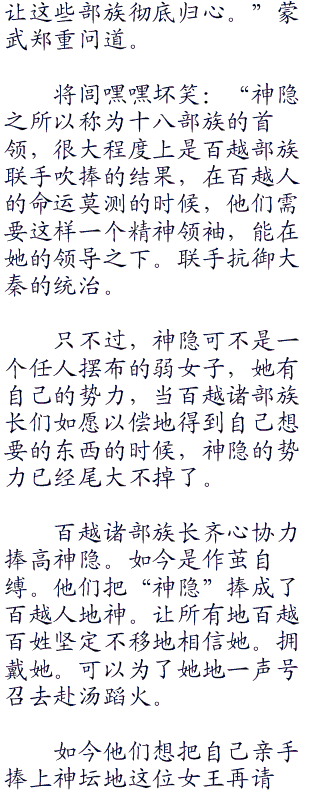 让这些部族彻底归心。”蒙
武郑重问道。
将闾嘿嘿坏笑：“神隐
之所以称为十八部族的首
领，很大程度上是百越部族
联手吹捧的结果，在百越人
的命运莫测的时候，他们需
要这样一个精神领袖，能在
她的领导之下。联手抗御大
秦的统治。
只不过，神隐可不是一
个任人摆布的弱女子，她有
自己的势力，当百越诸部族
长们如愿以偿地得到自己想
要的东西的时候，神隐的势
力已经尾大不掉了。
百越诸部族长齐心协力
捧高神隐。如今是作茧自
缚。他们把“神隐”捧成了
百越人地神。让所有地百越
百姓坚定不移地相信她。拥
戴她。可以为了她地一声号
召去赴汤蹈火。
如今他们想把自己亲手
捧上神坛地这位女王再请